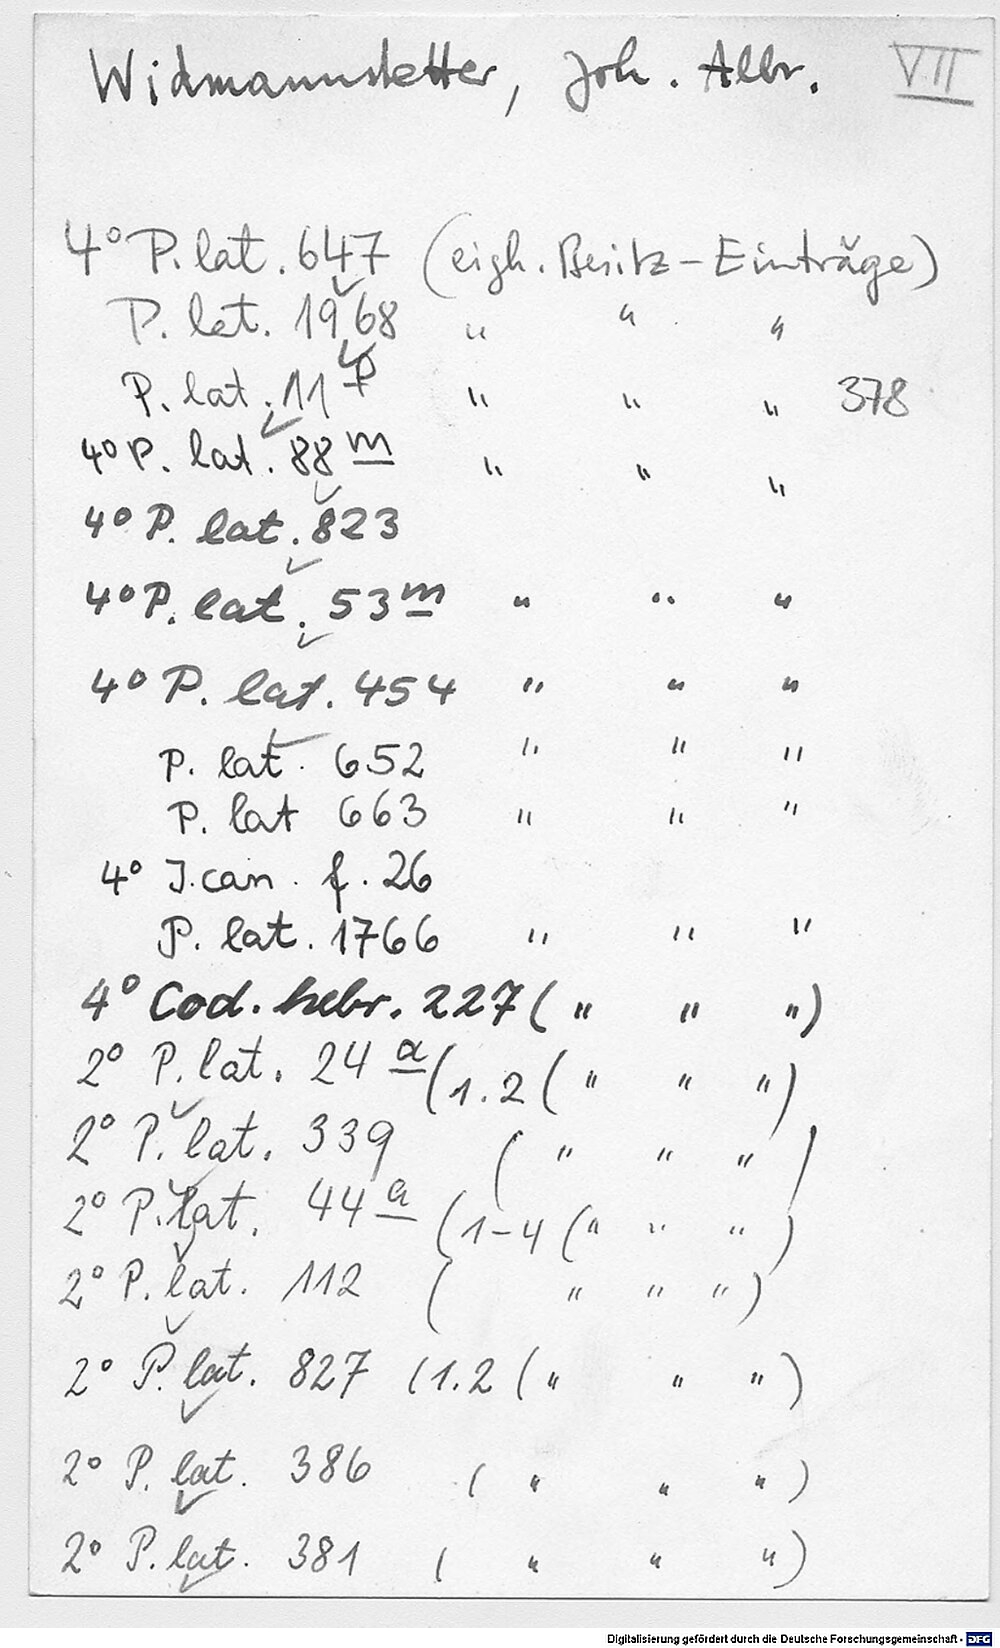 Widmannstetter, Joh. Albr. VII
4° P. lat. 647 (eigh. Besitz-Einträge)
P. lat. 1968 " " "
P. lat. 11 p " " " 378
4° P. lat. 88 m " " "
4° P. lat. 823
4° P. lat. 53 m " " "
4° P. lat. 454 " " "
P. lat. 652 " " "
P. lat 663 " " "
4° J. can. f. 26
P. lat. 1766 " " "
4° Cod. hebr. 227 ( " " " )
2° P. lat. 24 a (1.2 ( " " " )
2° P. lat. 339 ( " " " )
2° P. lat. 44 a (1-4 ( " " " )
2° P. lat. 112 ( " " " )
2° P. lat. 827 (1.2 ( " " " )
2° P. lat. 386 ( " " " )
2° P. lat. 381 ( " " " )
Digitalisierung gefördert durch die Deutsche Forschungsgemeinschaft - DFG